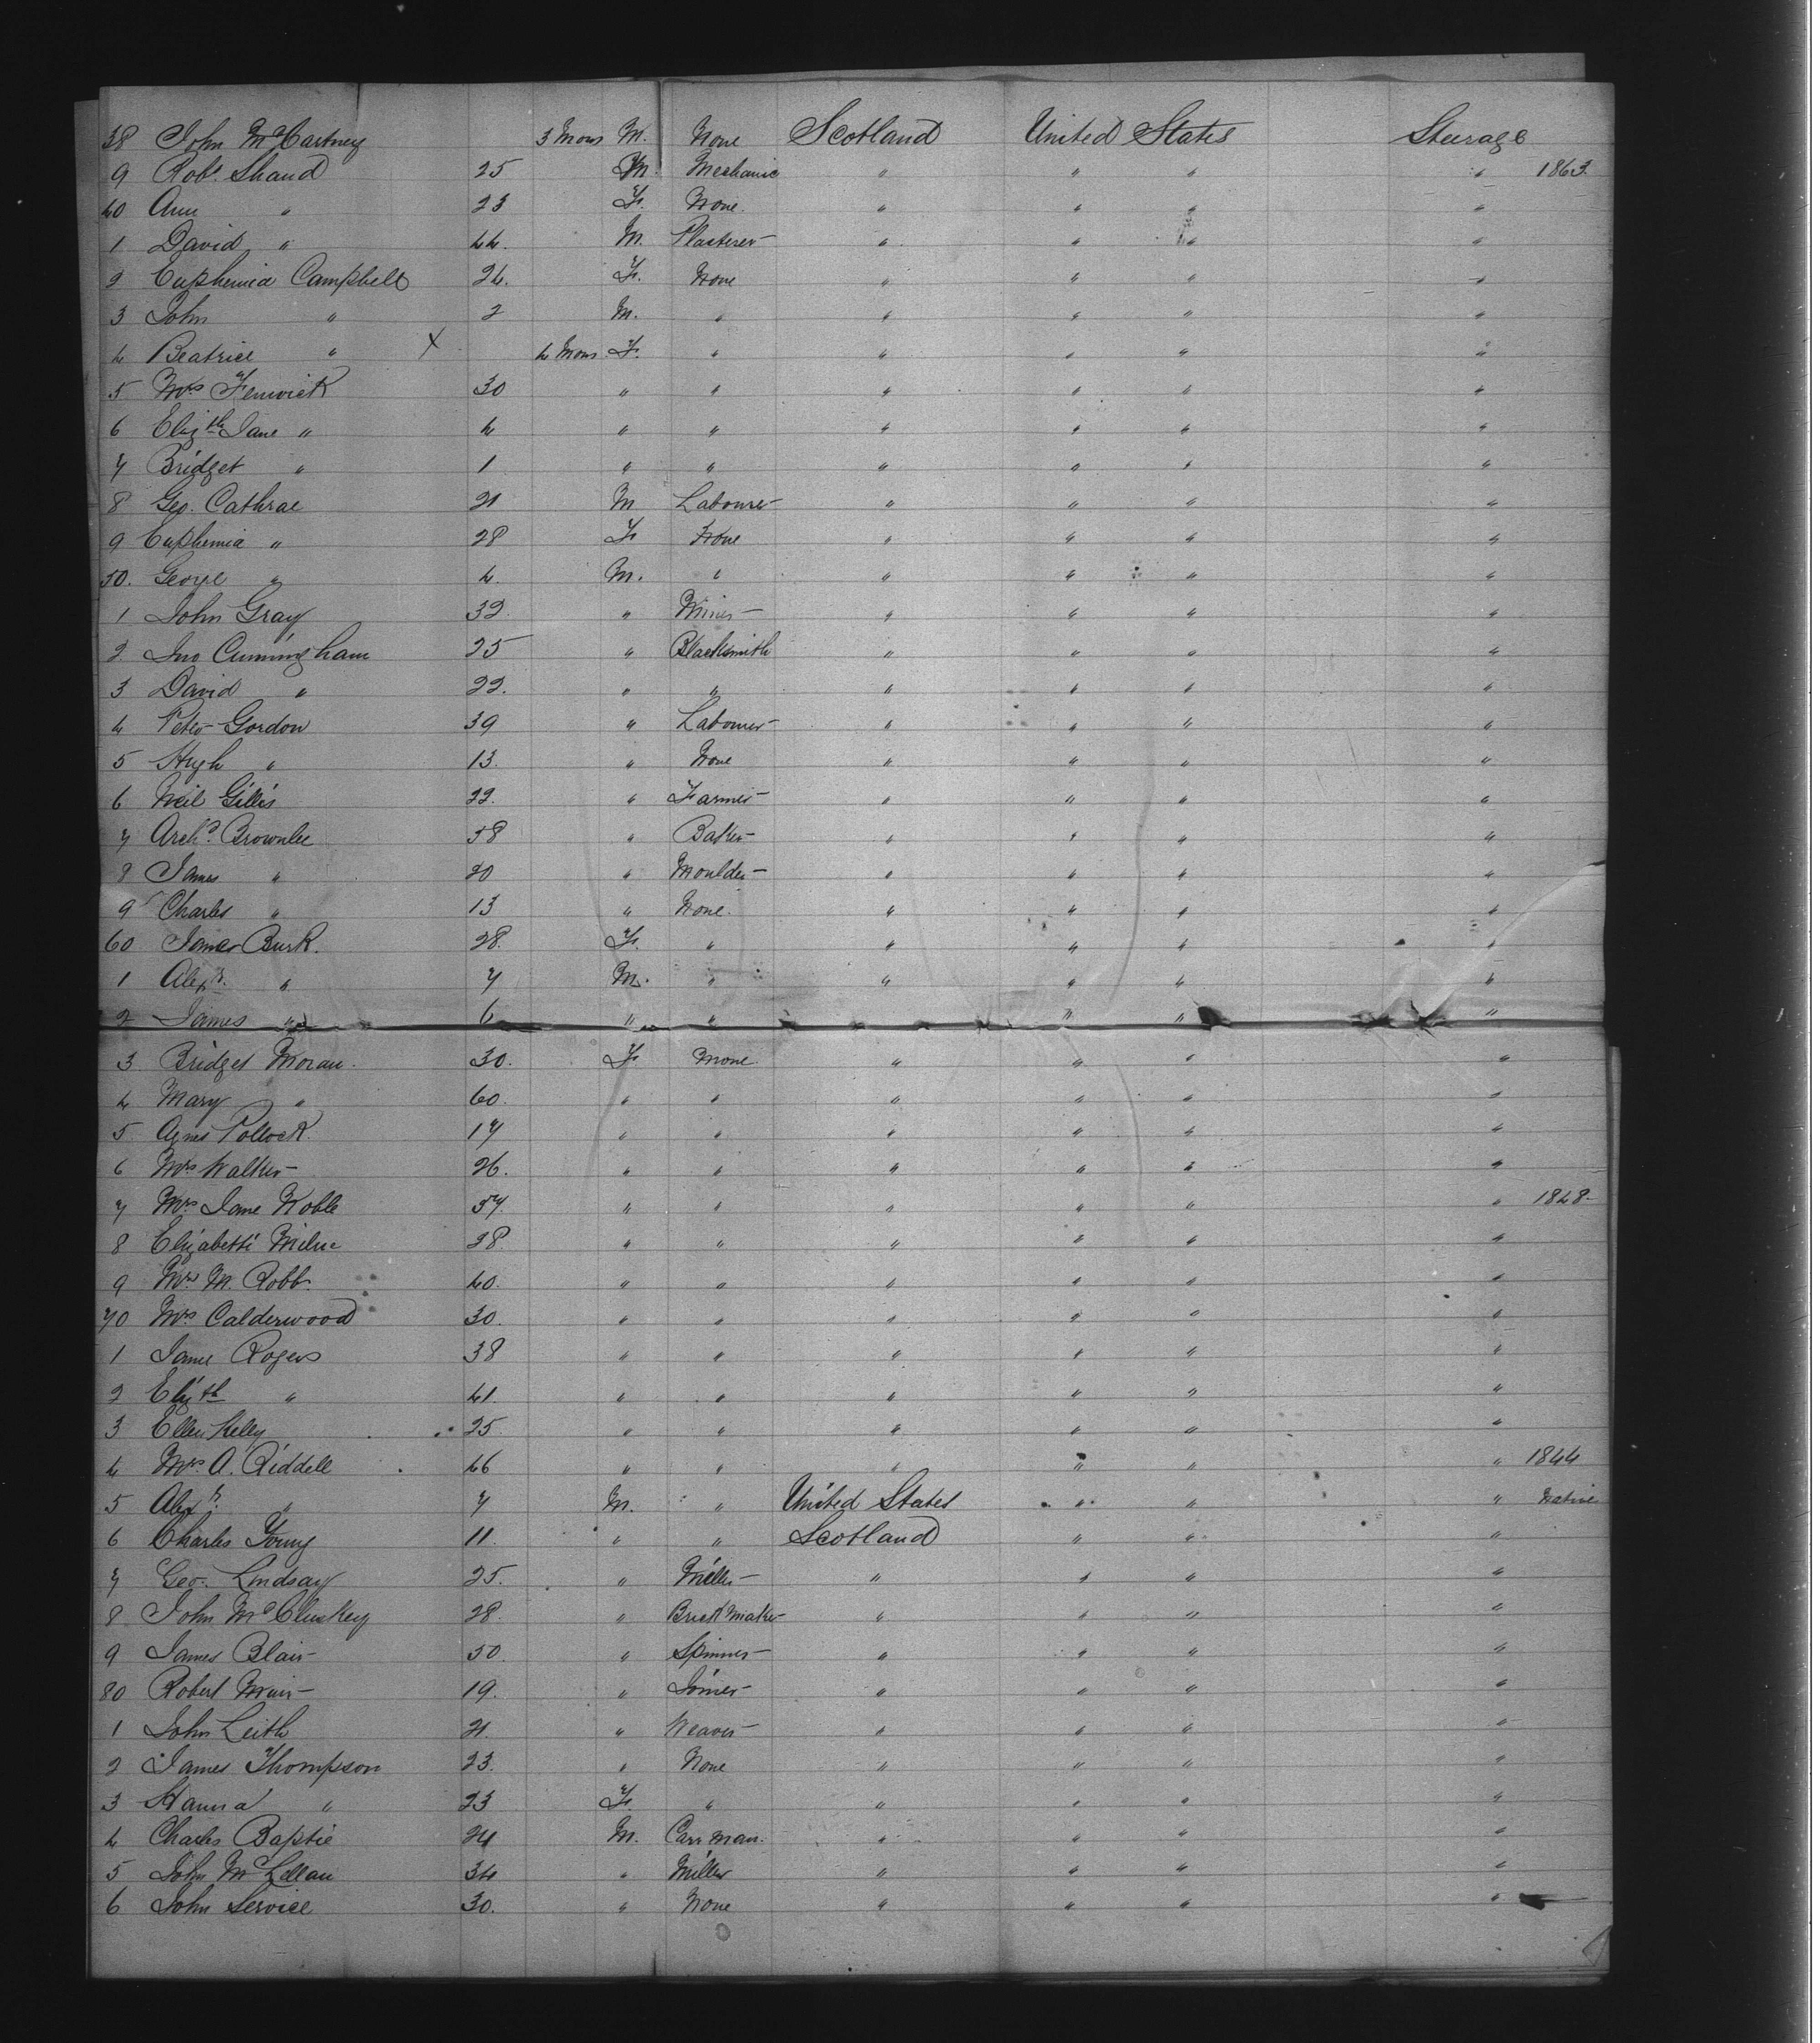 38 John McCartney 3 Mons M. None Scotland United States Steerage
9 Robt. Shand 25 M. Mechanic " " " " 1863
40 Ann " 23 F. None " " " "
1 David " 44. M. Plasterer " " " "
2 Euphemia Campbell 24. F. None " " " "
3 John " 2 M. " " " " "
4 Beatrice " X 4 Mons F. " " " " "
5 Mrs Fenwick 30 " " " " " "
6 Elizth Jane " 4 " " " " " "
7 Bridget " 1 " " " " " "
8 Geo. Cathrae 21 M Labourer " " " "
9 Euphemia " 28 F None " " " "
50. George " 4. M. " " " " "
1 John Gray 32. " Miner " " " "
2 Jno Cunningham 25 " Blacksmith " " " "
3 David " 22. " " " " " "
4 Peter Gordon 39 " Labourer " " " "
5 Hugh " 13. " None " " " "
6 Neil Gillis 22. " Farmer " " " "
7 Archd. Brownlee 58 " Baker " " " "
8 James " 20 " Moulder " " " "
9 Charles " 13 " None. " " " "
60 Burk. 28. F. " " " " "
1 Alexr. " 7 M. " " " " "
2 James " 6 " " " " "
3 Bridget Moran. 30. F. None. " " " "
4 Mary " 60. " " " " " "
5 Agnes Pollock. 17 " " " " " "
6 Mrs Walker 26. " " " " " "
7 Mrs Jane Noble 57. " " " " " " 1848
8 Elizabeth Milne 38 " " " " " "
9 Mrs M. Robb. 40. " " " " " "
70 Mrs Calderwood 30. " " " " " "
1 Jane Rogers 38 " " " " " "
2 Elizth " 41. " " " " " "
3 Ellen Kelly 25 " " " " " "
4 Mrs A. Riddell 46 " " " " " " 1844
5 Alexr. " 7 M. " United States " " " Native
6 Charles Young 11. " " Scotland " " "
7 Geo. Lindsay 25. " Miller " " " "
8 John McCluskey 28. " Brick Maker " " " "
9 James Blair 50 " Spinner " " " "
80 Robert Muir 19. " Joiner " " " "
1 John Leith 21. " Weaver " " " "
2 James Thompson 23. " None " " " "
3 Hanna " 23 F. " " " " "
4 Charles Baptie 24 M. Carr man. " " " "
5 John McLellan 34 " Miller " " " "
6 John Service 30. " None " " " "